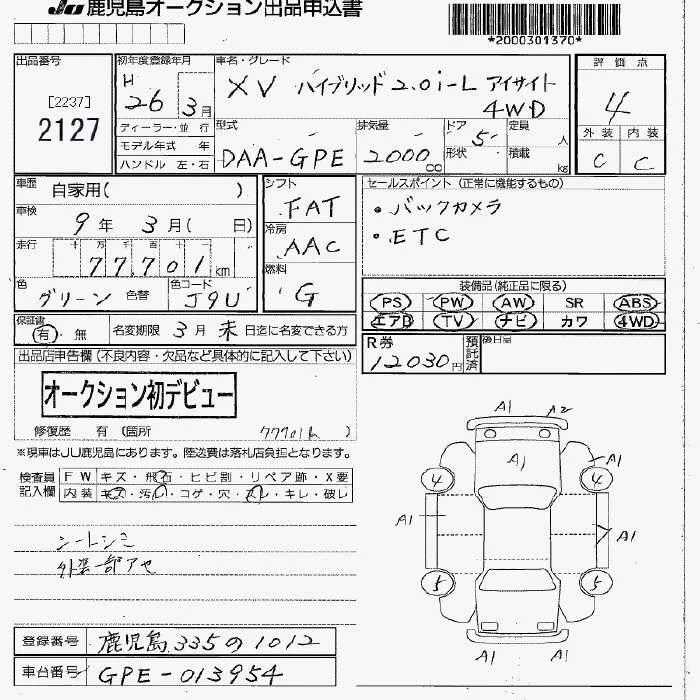 JU 鹿児島オークション出品申込書
*2000301370*
出品番号
[2237]
2127
初年度登録年月
H 26 3月
ディーラー・並 行
モデル年式 年
ハンドル 左・右
車名・グレード
XV ハイブリッド 2.0i-L アイサイト
4WD
型式
DAA-GPE
排気量
2000cc
ドア 5
形状
定員 人
積載 kg
評価点
4
外装 内装
C C
車歴 自家用( )
車検 9年 3月( 日)
走行 十 万 千 百 十 一
77701km
色 グリーン 色替
色コード J9U
シフト FAT
冷房 AAC
燃料 G
セールスポイント (正常に機能するもの)
・バックカメラ
・ETC
装備品(純正品に限る)
PS PW AW SR ABS
エアB TV ナビ カワ 4WD
保証書 有 無
名変期限 3月 末 日迄に名変できる方
R券 12030円
預託済
後日品
出品店申告欄 (不良内容・欠品など具体的に記入して下さい)
オークション初デビュー
修復歴 有 (箇所 77701k )
※現車はJU鹿児島にあります。陸送費は落札店負担となります。
検査員記入欄
FW キズ・飛石・ヒビ割・リペア跡・X要
内装 キズ・汚れ・コゲ・穴・スレ・キレ・破レ
シートシミ
外装一部アセ
登録番号 鹿児島 335 の 1012
車台番号 GPE-013954
A1 A2
A1
4 4 A1
A1 A1
5 5
A1 A1